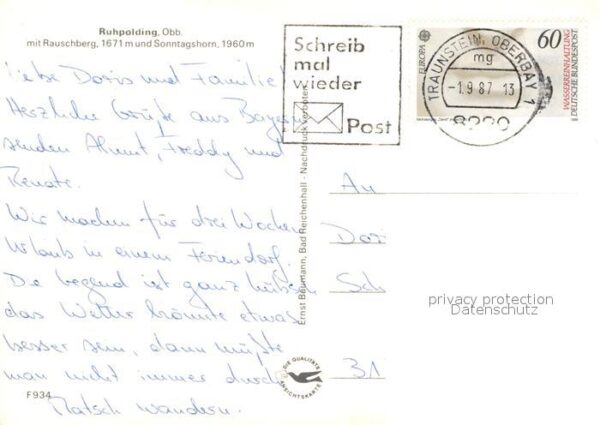 Ruhpolding, Obb.
mit Rauschberg, 1671 m und Sonntagshorn, 1960 m
Liebe Doris und Familie!
Herzliche Grüße aus Bayern
senden Almut, Freddy und
Renate.
Wir machen für drei Wochen
Urlaub in einem Feriendorf.
Die Gegend ist ganz hübsch,
das Wetter könnte etwas
besser sein, dann müßte
man nicht immer durch
Matsch wandern.
F 934
Schreib
mal
wieder
Post
EUROPA
60
WASSERREINHALTUNG
DEUTSCHE BUNDESPOST
TRAUNSTEIN, OBERBAY 1
mg
-1.9.87 13
8220
Ernst Baumann, Bad Reichenhall - Nachdruck verboten
DIE QUALITÄTS
ANSICHTSKARTE
An
Dori
Sch
31
privacy protection
Datenschutz